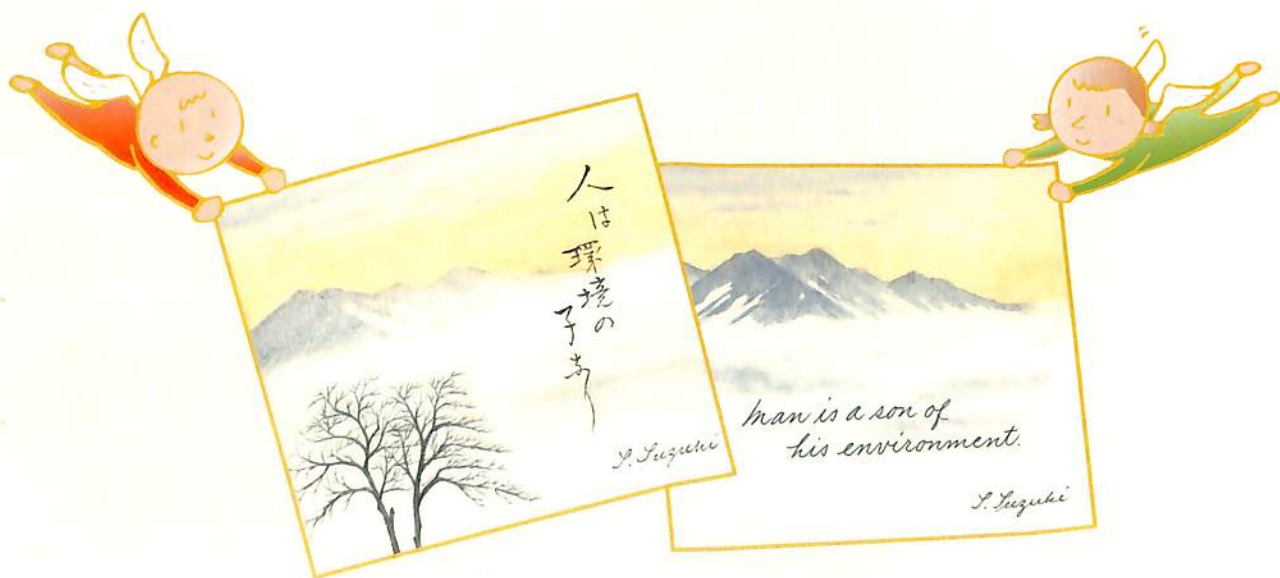 人は環境の
子なり
S. Suzuki
Man is a son of
his environment.
S. Suzuki